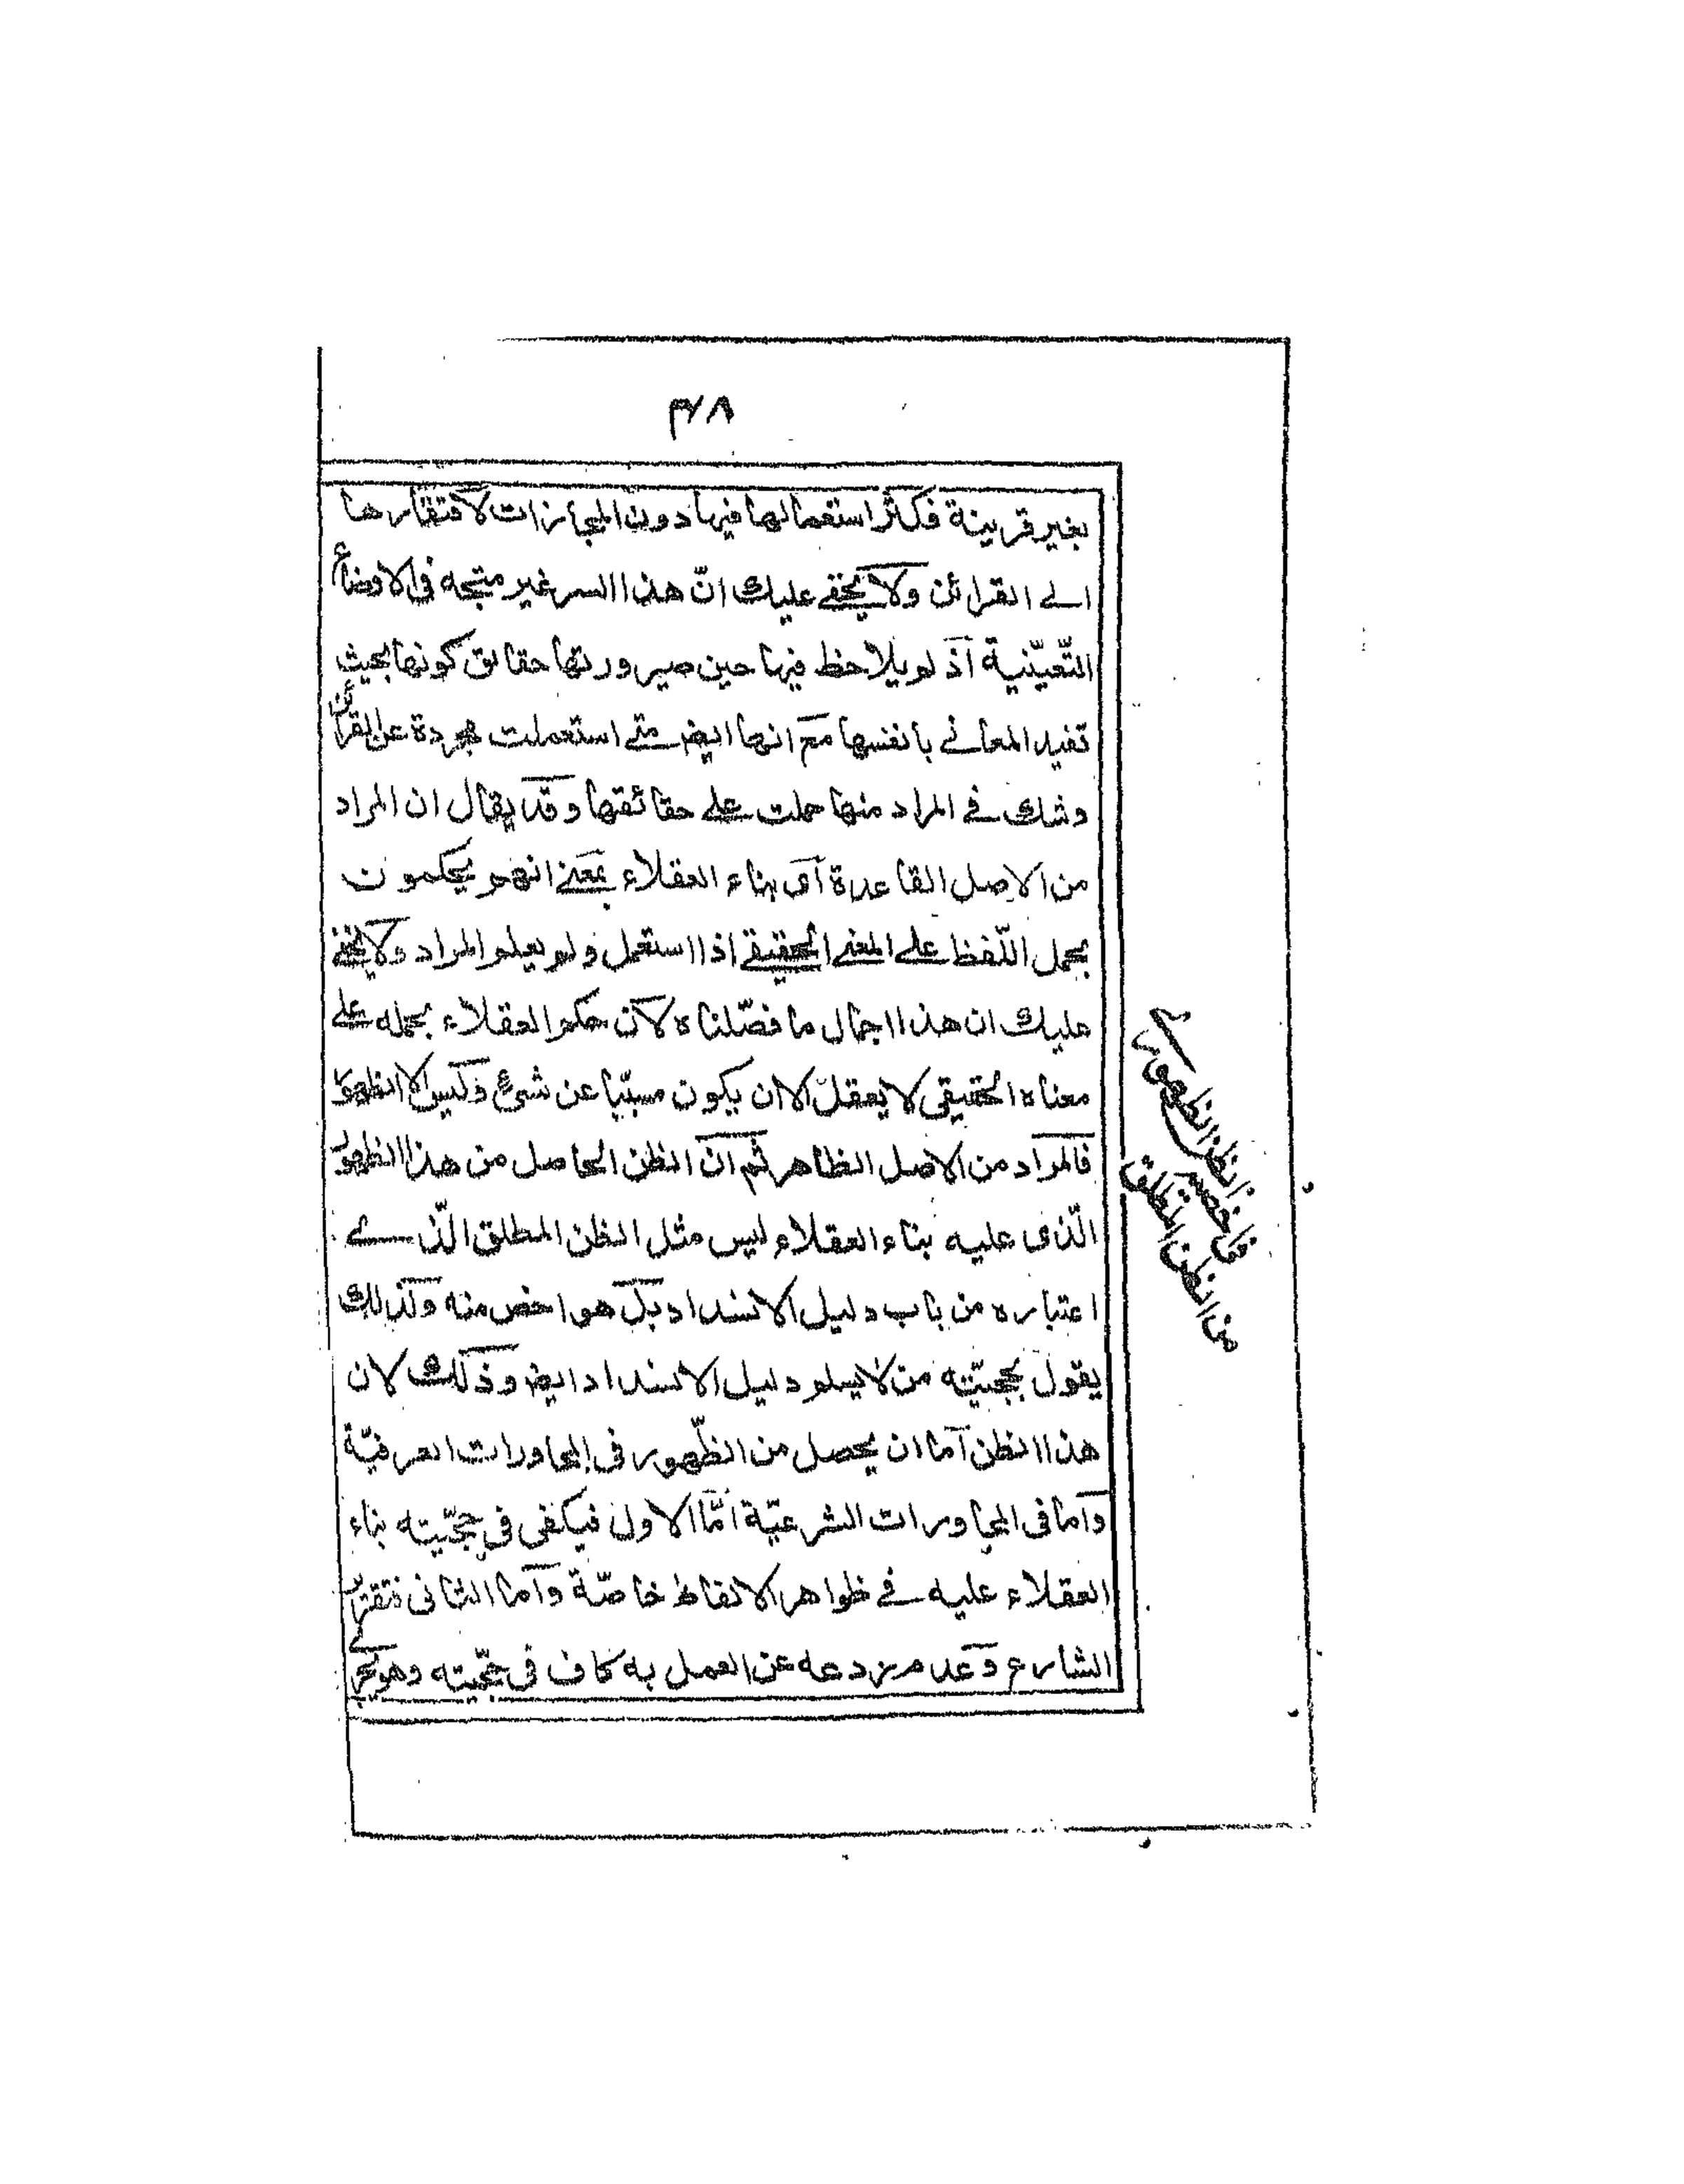 ٣٧٨
بغير قرينة فكثر استعمالها فيها دون المجازات لافتقارها
الے القرائن ولا يخفے عليك انّ هذا السر غير متجه فى الاوضاع
التّعيّنية اذ لم يلاحظ فيها حين صيرورتها حقايق كونها بحيث
تفيد المعانے بانفسها مع انها ايض متے استعملت مجردة عن القرائن
وشك فے المراد منها حملت علے حقائقها وقد يقال ان المراد
من الاصل القاعدة اى بناء العقلاء بمعنے انهم يحكمون
بحمل اللّفظ علے المعنے الحقيقے اذا استعمل ولم يعلم المراد ولا يخفے
عليك ان هذا اجمال ما فصّلناه لان حكم العقلاء بحمله علے
معناه الحقيقى لا يعقل الا ان يكون مسبّبا عن شئ وليس الا الظهور
فالمراد من الاصل الظاهر ثم ان الظن الحاصل من هذا الظهور
الّذى عليه بناء العقلاء ليس مثل الظن المطلق الّذے
اعتباره من باب دليل الانسداد بل هو اخص منه ولذلك
يقول بحجيّته من لا يسلم دليل الانسداد ايض وذلك لان
هذا الظن اما ان يحصل من الظّهور فى المحاورات العرفيّة
واما فى المحاورات الشرعيّة امّا الاول فيكفى فى حجّيته بناء
العقلاء عليه فے ظواهر الالفاظ خاصّة واما الثانى فتقرير
الشارع وعدم ردعه عن العمل به كاف فى حجّيته وهو يجرے
الظن الظهورى
اخص
من الظن المطلق